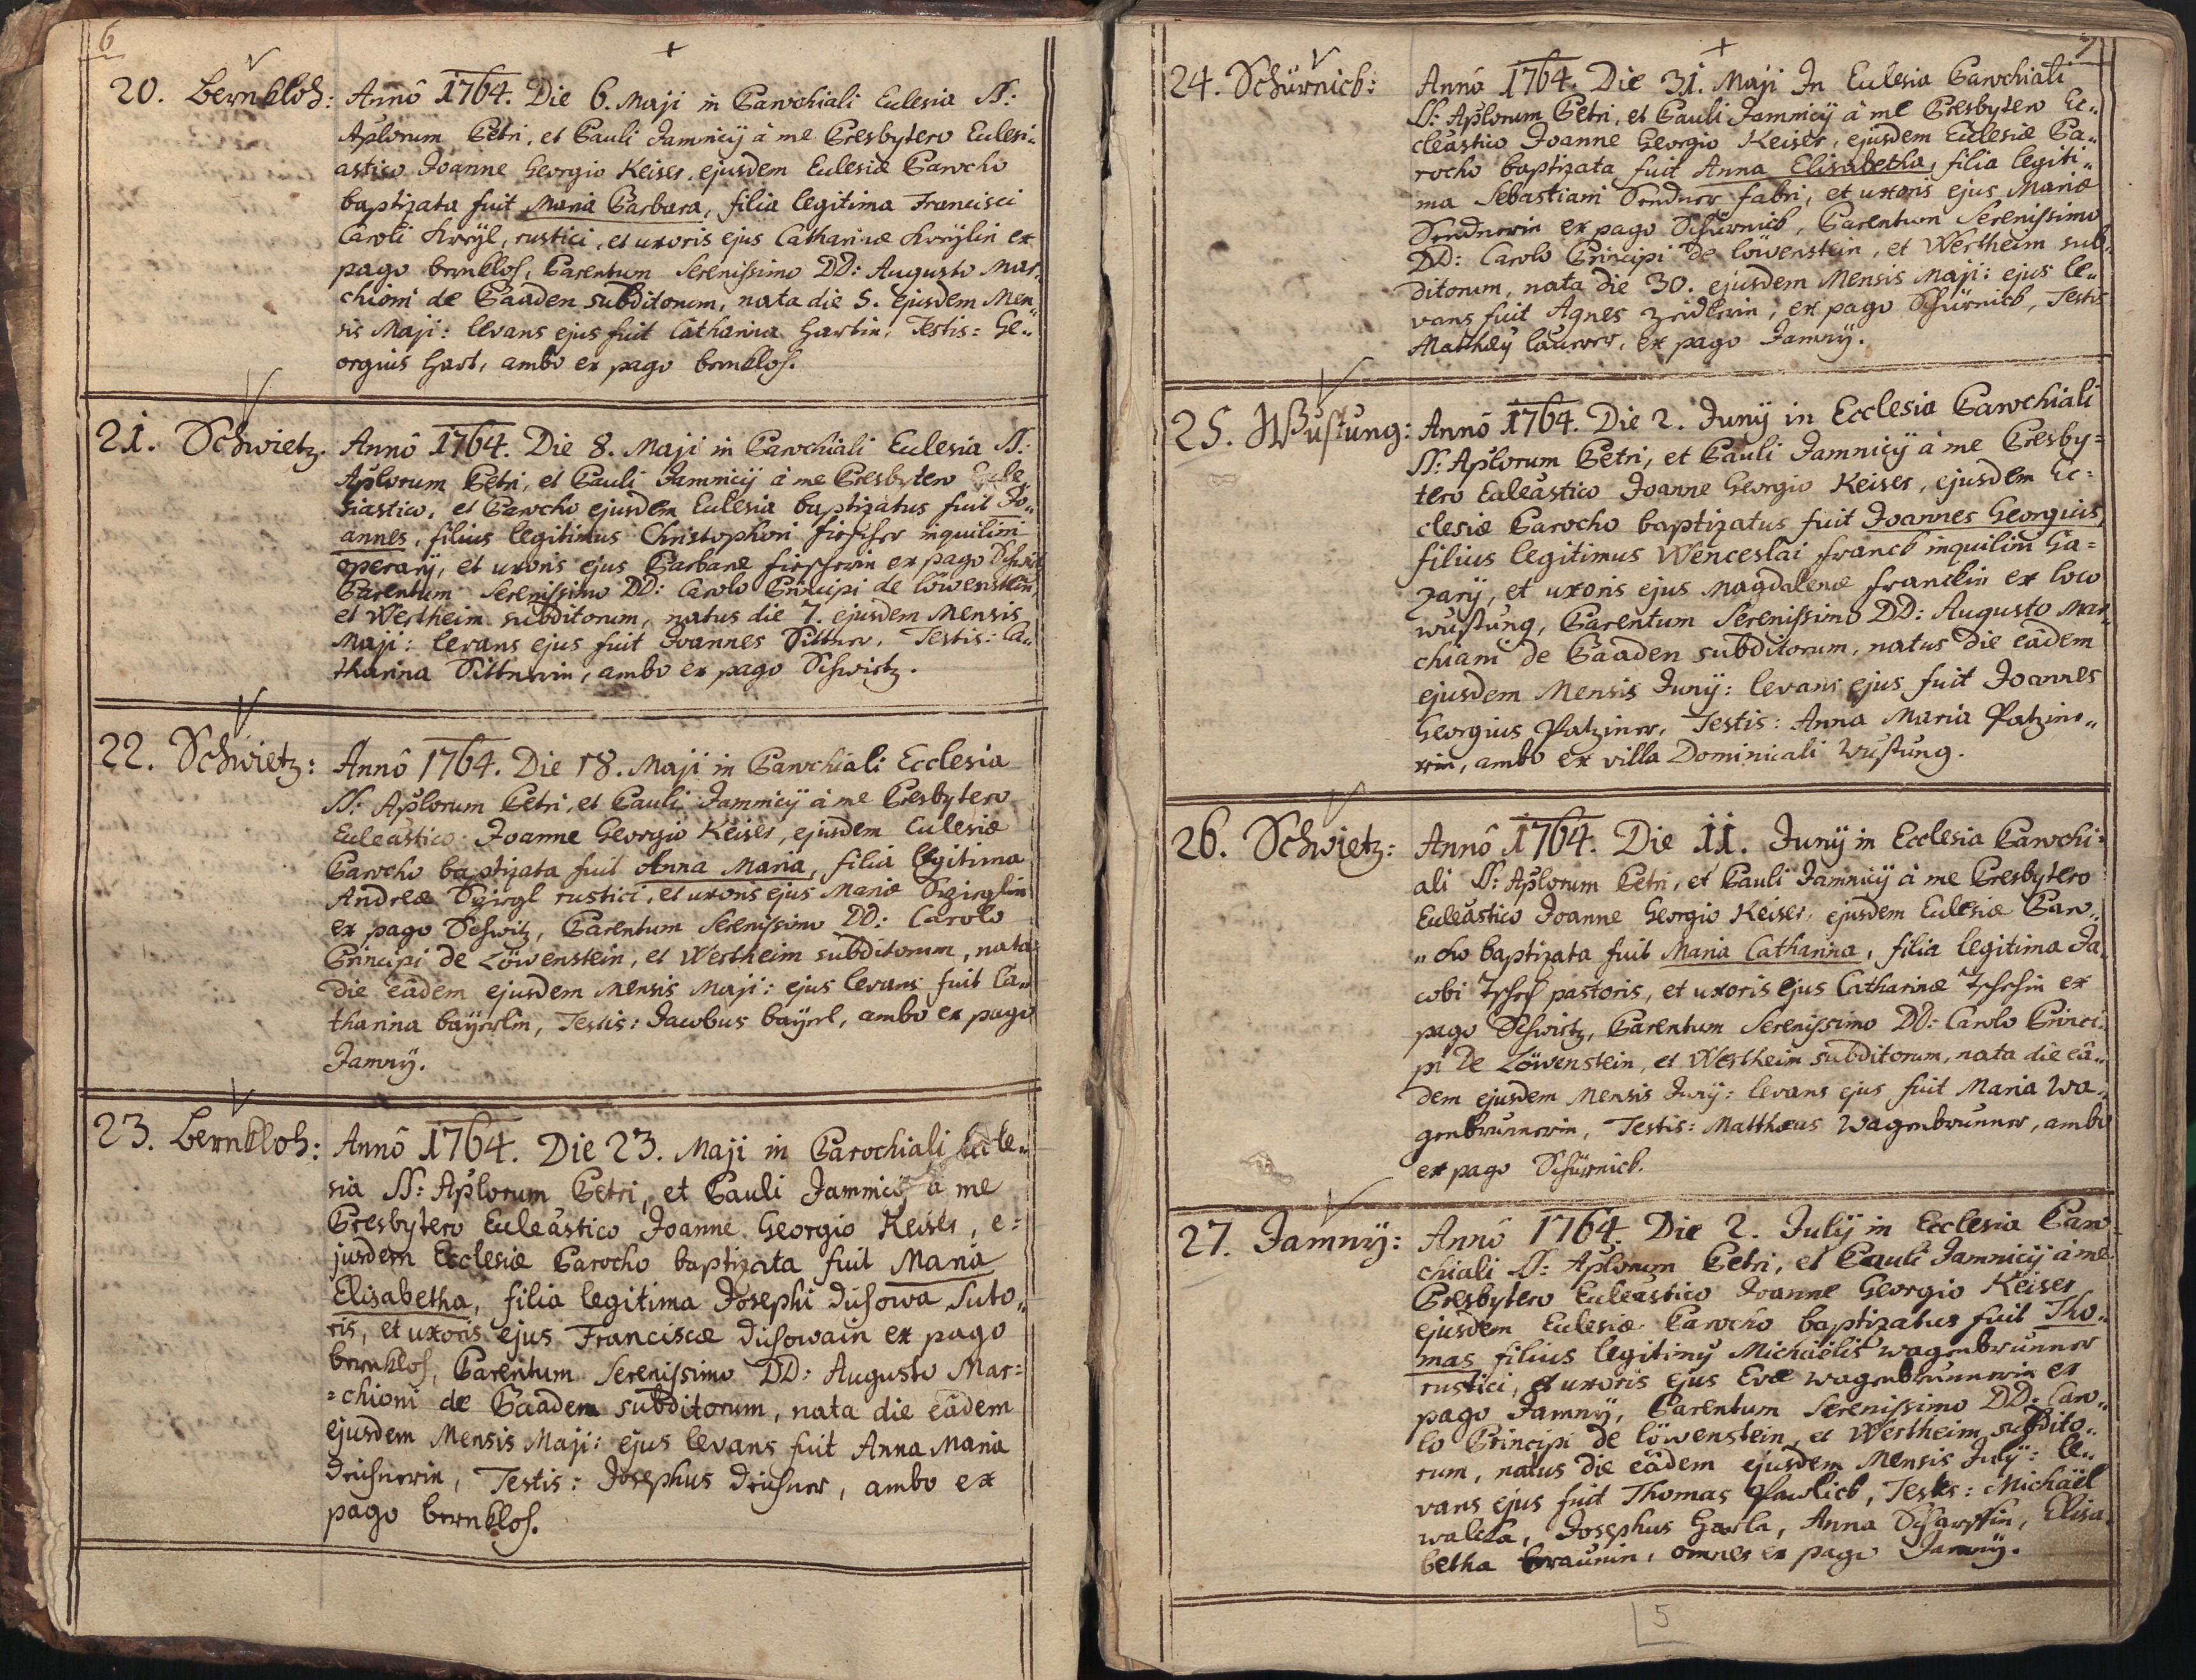 6
20. Bernkloh:
Annô 1764. Die 6. Maji in Parochiali Eclesia SS:
Aplorum Petri, et Pauli Jamnicÿ à me Presbytero Eclesi„
astico Joanne Georgio Keiser, ejusdem Eclesiæ Parocho
baptizata fuit Maria Barbara, filia legitima Francisci
Caroli Kreÿl, rustici, et uxoris ejus Catharinæ Kreÿlin ex
pago bernkloh, Parentum Serenissimo DD: Augusto Mar„
chioni de Baaden subditorum, nata die 5. ejusdem Men„
sis Maji: levans ejus fuit Catharina Hartin, Testis: Ge„
orgius Hart, ambo ex pago bernkloh.
21. Schwietz.
Annô 1764. Die 8. Maji in Parochiali Eclesia SS:
Aplorum Petri, et Pauli Jamnicÿ à me Presbytero Ecle
siastico, et Parocho ejusdem Eclesia baptizatus fuit Jo„
annes, filius legitimus Christophori fischer inquilini
operarÿ, et uxoris ejus Barbaræ fischerin ex pago Schwitz
Parentum Serenissimo DD: Carolo Principi de löwenstein,
et Wertheim subditorum, natus die 7. ejusdem Mensis
Maji: levans ejus fuit Joannes Sittner, Testis: Ca„
tharina Sittnerin, ambo ex pago Schwietz.
22. Schwietz:
Annô 1764. Die 18. Maji in Parochiali Ecclesia
SS: Aplorum Petri, et Pauli Jamnicÿ à me Presbytero
Ecleastico Joanne Georgio Keiser, ejusdem Eclesiæ
Parocho baptizata fuit Anna Maria, filia legitima
Andreæ rustici, et uxoris ejus Mariæ
ex pago Schwitz, Parentum Serenissimo DD: Carolo
Principi de Löwenstein, et Wertheim subditorum, nata
die eâdem ejusdem Mensis Maji: ejus levans fuit Ca„
tharina baÿerlin, Testis: Jacobus baÿerl, ambo ex pago
Jamnÿ.
23. Bernkloh:
Annô 1764. Die 23. Maji in Parochiali Eccle„
sia SS: Aplorum Petri, et Pauli Jamnicÿ à me
Presbytero Ecleastico Joanne Georgio Keiser, e=
jusdem Ecclesiæ Parocho baptizata fuit Maria
Elisabetha, filia legitima Josephi Duchowa Suto„
ris, et uxoris ejus Franciscæ Duchowain ex pago
bernkloh, Parentum Serenissimo DD: Augusto Mar=
=chioni de Baaden subditorum, nata die eâdem
ejusdem Mensis Maji: ejus levans fuit Anna Maria
Testis: Josephus ambo ex
pago bernkloh.
7
24. Schürnick:
Annô 1764. Die 31. Maji In Eclesia Parochiali
SS: Aplorum Petri, et Pauli Jamnicÿ à me Presbytero Ec„
cleastico Joanne Georgio Keiser, ejusdem Eclesiæ Pa„
rocho baptizata fuit Anna Elisabetha, filia legiti„
ma Sebastiani Sendner fabri, et uxoris ejus Mariæ
Sendnerin ex pago Schürnick, Parentum Serenissimo
DD: Carolo Principi de löwenstein, et Wertheim sub„
ditorum, nata die 30. ejusdem Mensis Maji: ejus le„
vans fuit Agnes Zeidlerin, ex pago Schürnick, Testis
Matthæÿ laurer, ex pago Jamnÿ.
25. Wustung:
Annô 1764. Die 2. Junÿ in Ecclesia Parochiali
SS: Aplorum Petri, et Pauli Jamnicÿ à me Presby=
tero Ecleastico Joanne Georgio Keiser, ejusdem Ec=
clesiæ Parocho baptizatus fuit Joannes Georgius,
filius legitimus Wenceslai franck inquilini Ga=
zarÿ, et uxoris ejus Magdalenæ franckin ex loco
wustung, Parentum Serenissimo DD: Augusto Mar„
chiani de Baaden subditorum, natus die eâdem
ejusdem Mensis Junÿ: levans ejus fuit Joannes
Georgius Patziner, Testis: Anna Maria Patzine„
rin, ambo ex villa Dominicali Wustung.
26. Schwietz:
Annô 1764. Die 11. Junÿ in Ecclesia Parochi=
ali SS: Aplorum Petri, et Pauli Jamnicÿ à me Presbytero
Ecleastico Joanne Georgio Keiser, ejusdem Eclesiæ Paro„
„cho baptizata fuit Maria Catharina, filia legitima Ja„
cobi pastoris, et uxoris ejus Catharinæ ex
pago Schwietz, Parentum Serenissimo DD: Carolo Princi„
pi de Löwenstein, et Wertheim subditorum, nata die eâ„
dem ejusdem Mensis Junÿ: levans ejus fuit Maria Wa„
genbrunnerin, Testis: Matthæus Wagenbrunner, ambo
ex pago Schürnick.
27. Jamnÿ:
Annô 1764. Die 2. Julÿ in Ecclesia Paro
chiali SS: Aplorum Petri, et Pauli Jamnicÿ à me
Presbytero Ecleastico Joanne Georgio Keiser
ejusdem Eclesiæ Parocho baptizatus fuit Tho„
mas filius legitimÿ Michaëlis wagenbrunner
rustici, et uxoris ejus Evæ wagenbrunnerin ex
pago Jamnÿ, Parentum Serenissimo DD: Caro„
lo Principi de löwenstein, et Wertheim subdito„
rum, natus die eâdem ejusdem Mensis Julÿ: le„
vans ejus fuit Thomas Pawlick, Testes: Michaël
walcka, Josephus Garla, Anna Scharffin, Elisa„
betha braunin, omnes ex pago Jamnÿ.
5